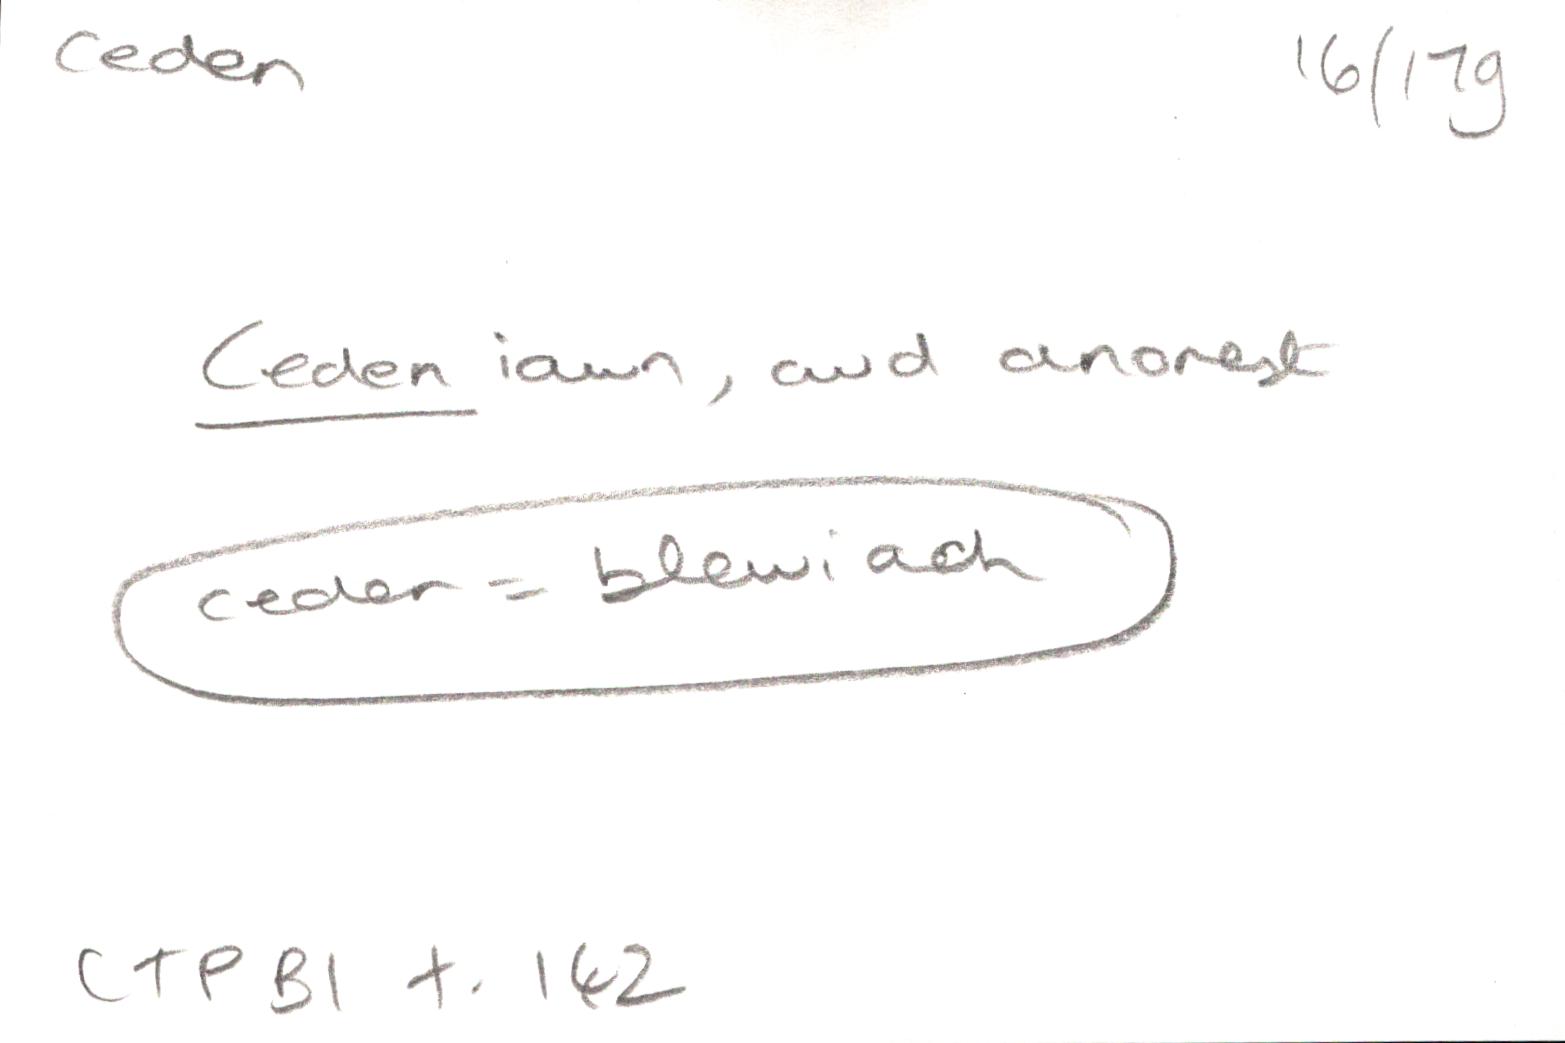 ceden 16/17g
Ceden iawn, awd anorest
ceden = blewiach
CTPB1 t. 142